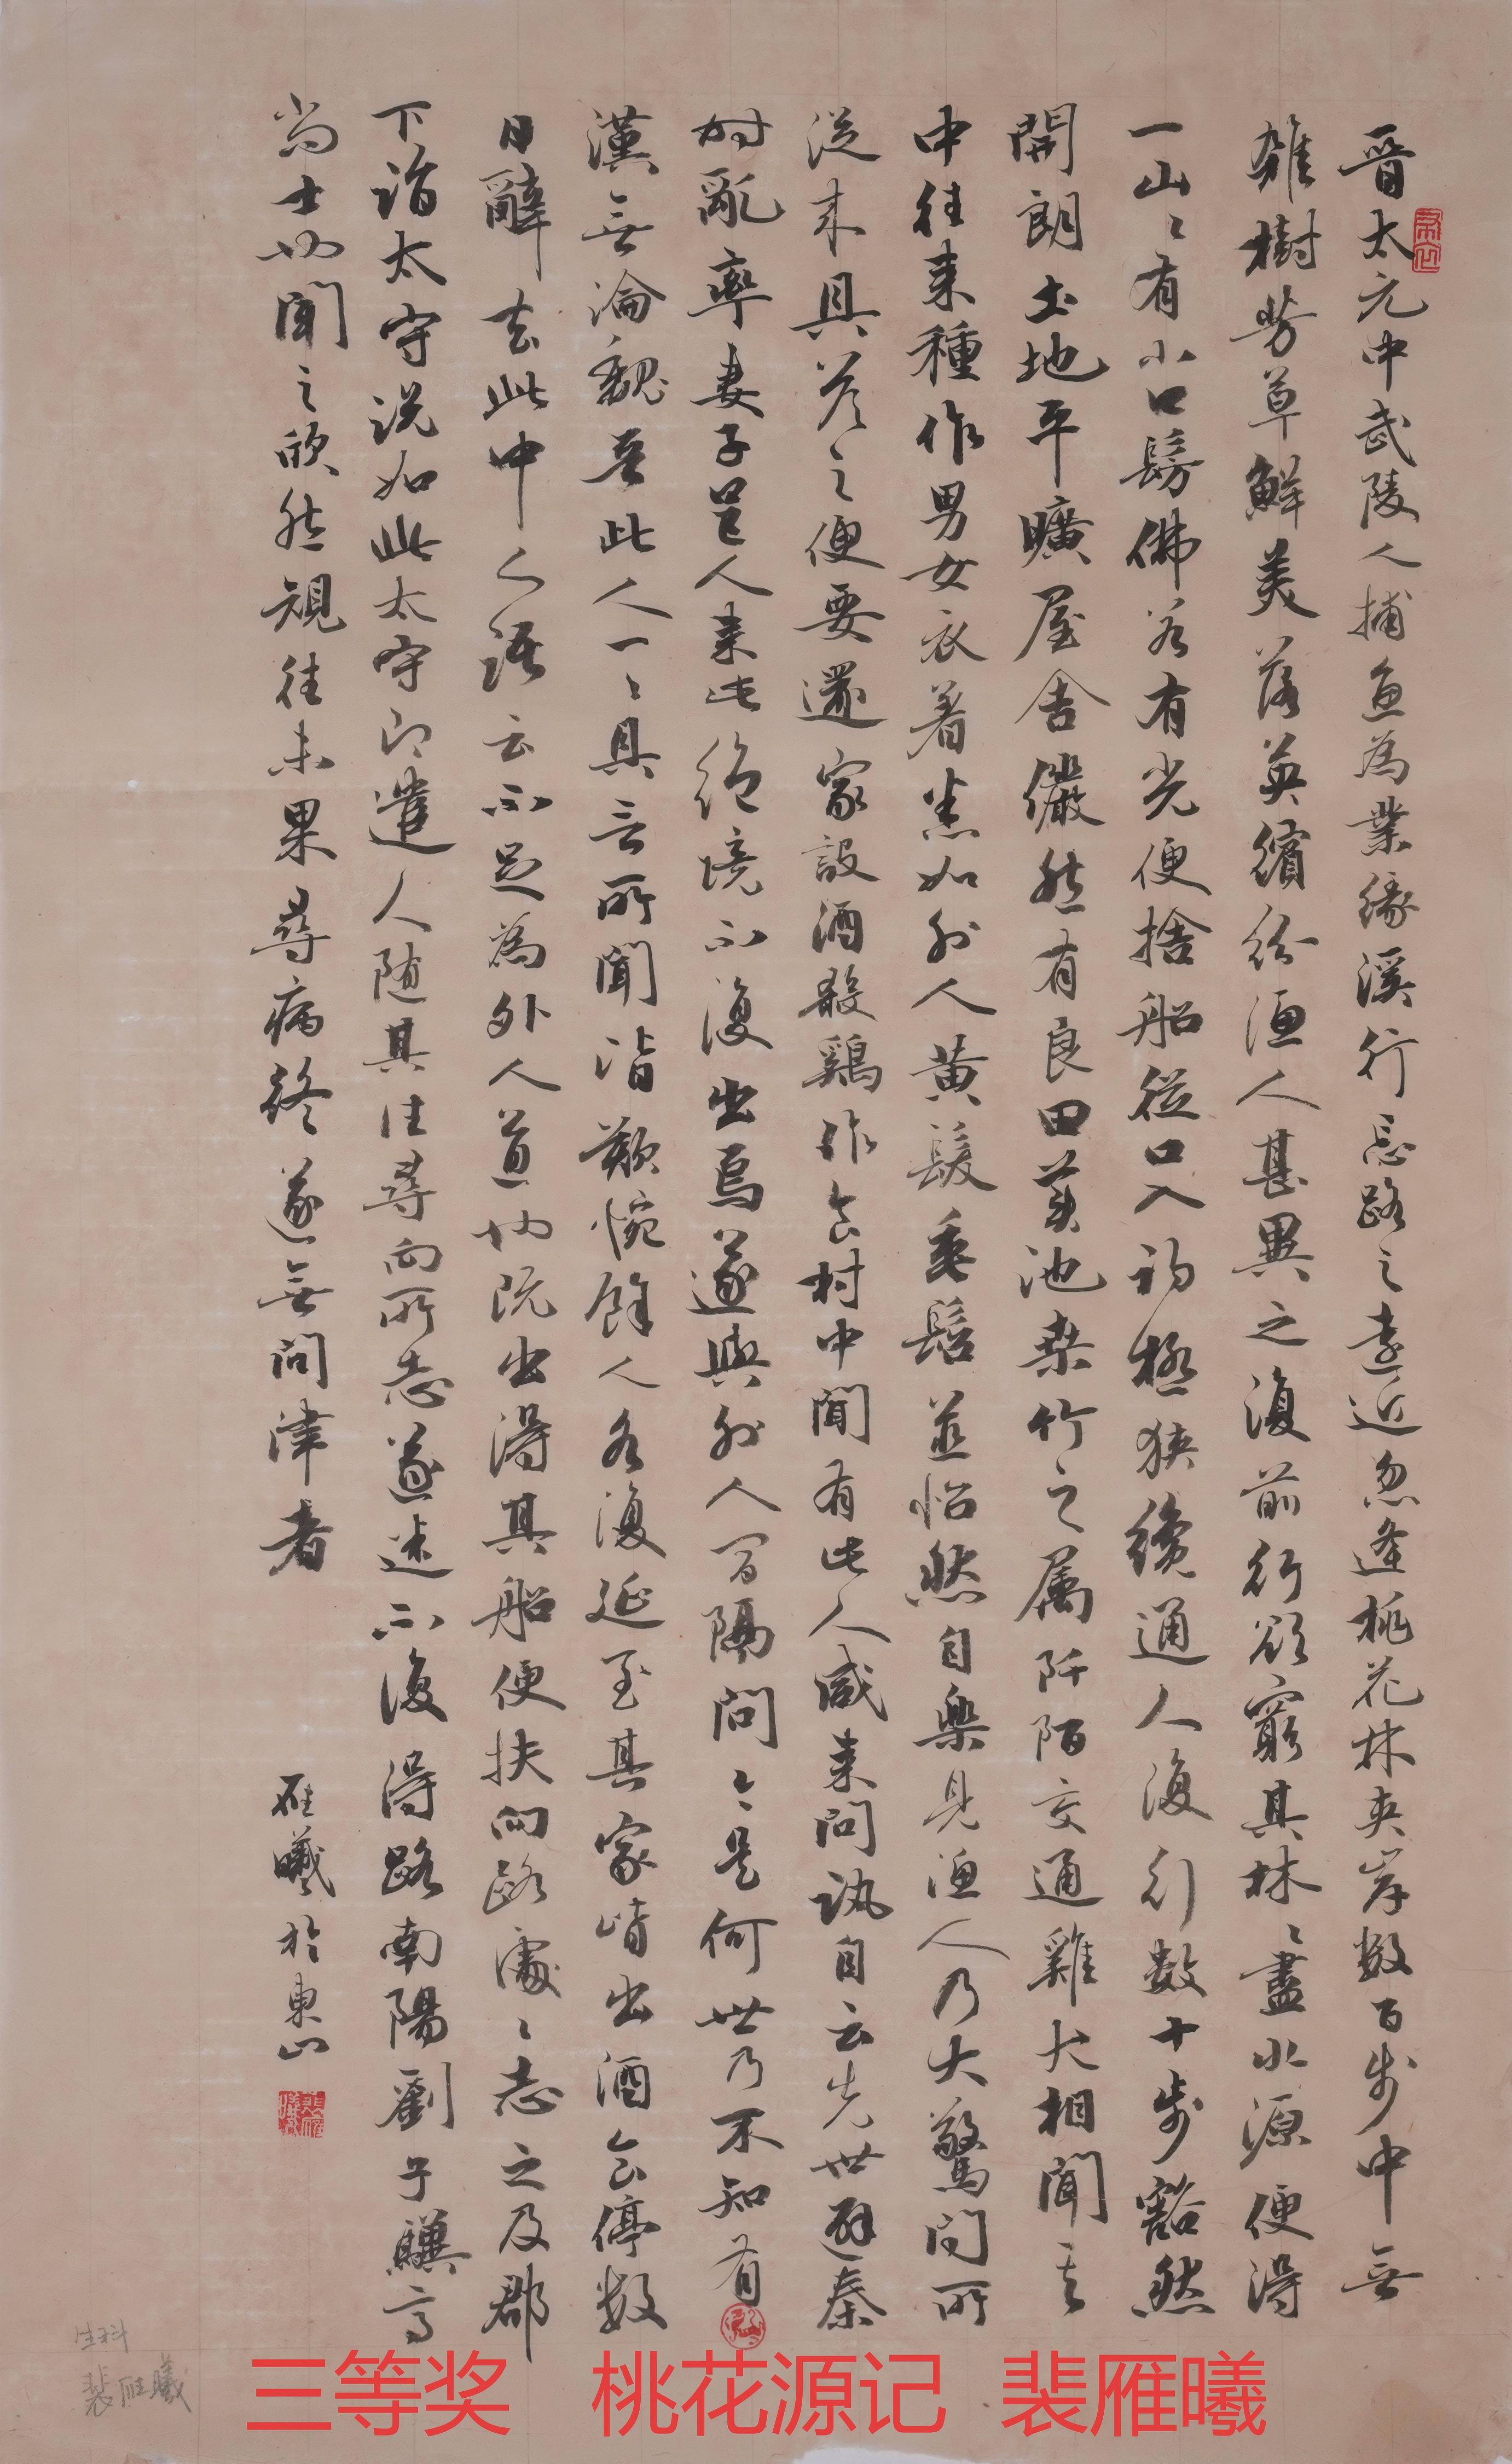 晉太元中武陵人捕魚為業緣溪行忘路之遠近忽逢桃花林夾岸數百步中無
雜樹芳草鮮美落英繽紛漁人甚異之復前行欲窮其林〻盡水源便得
一山〻有小口髣佛若有光便捨船從口入初極狹纔通人復行數十步豁然
開朗土地平曠屋舍儼然有良田美池桑竹之屬阡陌交通雞犬相聞其
中往來種作男女衣着悉如外人黃髮垂髫並怡然自樂見漁人乃大驚問所
從來具答之便要還家設酒殺鷄作食村中聞有此人咸來問訊自云先世避秦
時亂率妻子邑人來此絕境不復出焉遂與外人間隔問〻是何世乃不知有
漢無論魏晉此人一〻具言所聞皆歎惋餘人各復延至其家皆出酒食停數
日辭去此中人語云不足為外人道也既出得其船便扶向路處〻志之及郡
下詣太守說如此太守即遣人隨其往尋向所志遂迷不復得路南陽劉子驥高
尚士也聞之欣然規往未果尋病終遂無問津者
雁曦於東山
裴雁曦
生科
裴雁曦
三等奖 桃花源记 裴雁曦